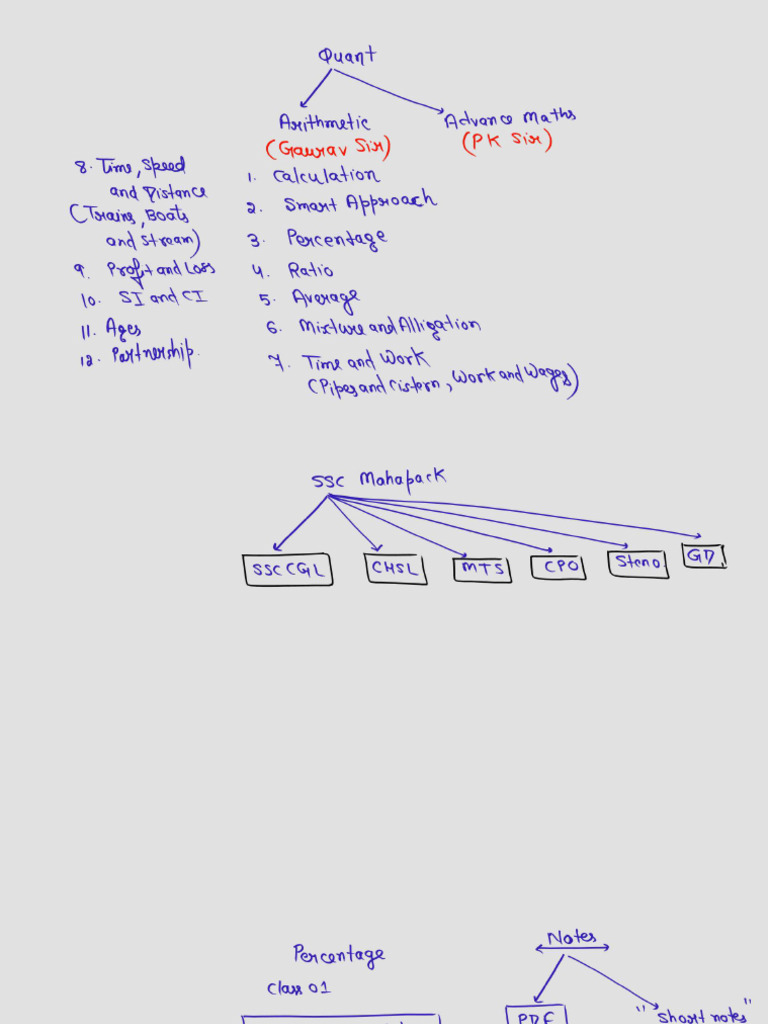 Quant
Arithmetic
(Gaurav Sir)
Advance Maths
(PK Sir)
1. Calculation
2. Smart Approach
3. Percentage
4. Ratio
5. Average
6. Mixture and Alligation
7. Time and Work
(Pipes and Cistern, Work and Wages)
8. Time, Speed
and Distance
(Trains, Boats
and Stream)
9. Profit and Loss
10. SI and CI
11. Ages
12. Partnership.
SSC Mahapack
SSC CGL
CHSL
MTS
CPO
Steno
GD
Percentage
Class 01
Notes
PDF
"Short notes"